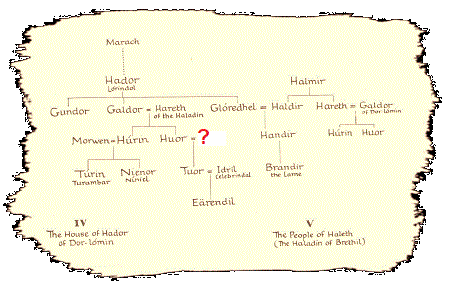 Marach
Hador
Lórindol
Halmir
Gundor Galdor = Hareth Glóredhel = Haldir Hareth = Galdor
of the Haladin of Dor-lómin
Morwen = Húrin Huor = ? Handir Húrin Huor
Túrin Nienor Tuor = Idril Brandir
Turambar Níniel Celebrindal the Lame
Eärendil
IV V
The House of Hador The People of Haleth
of Dor-lómin (The Haladin of Brethil)